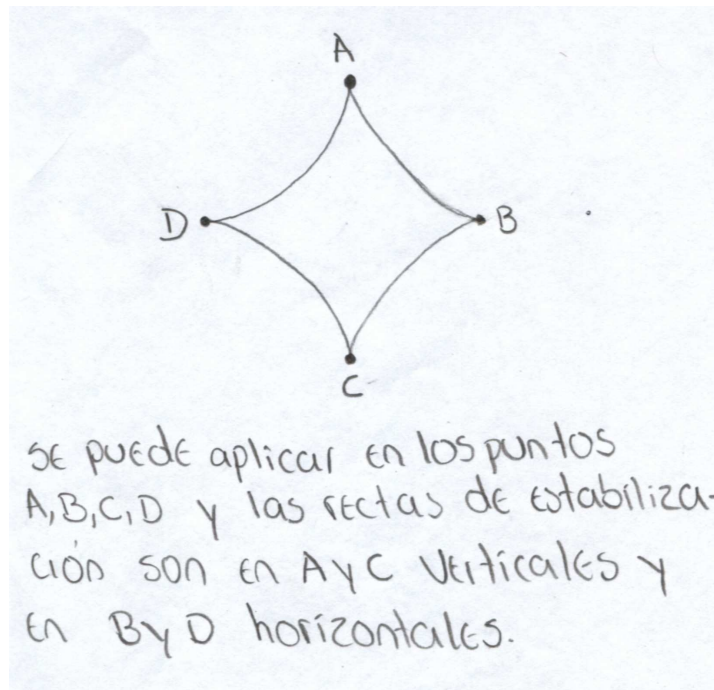 A
D
B
C
se puede aplicar en los puntos
A, B, C, D y las rectas de estabiliza-
ción son en A y C verticales y
en B y D horizontales.